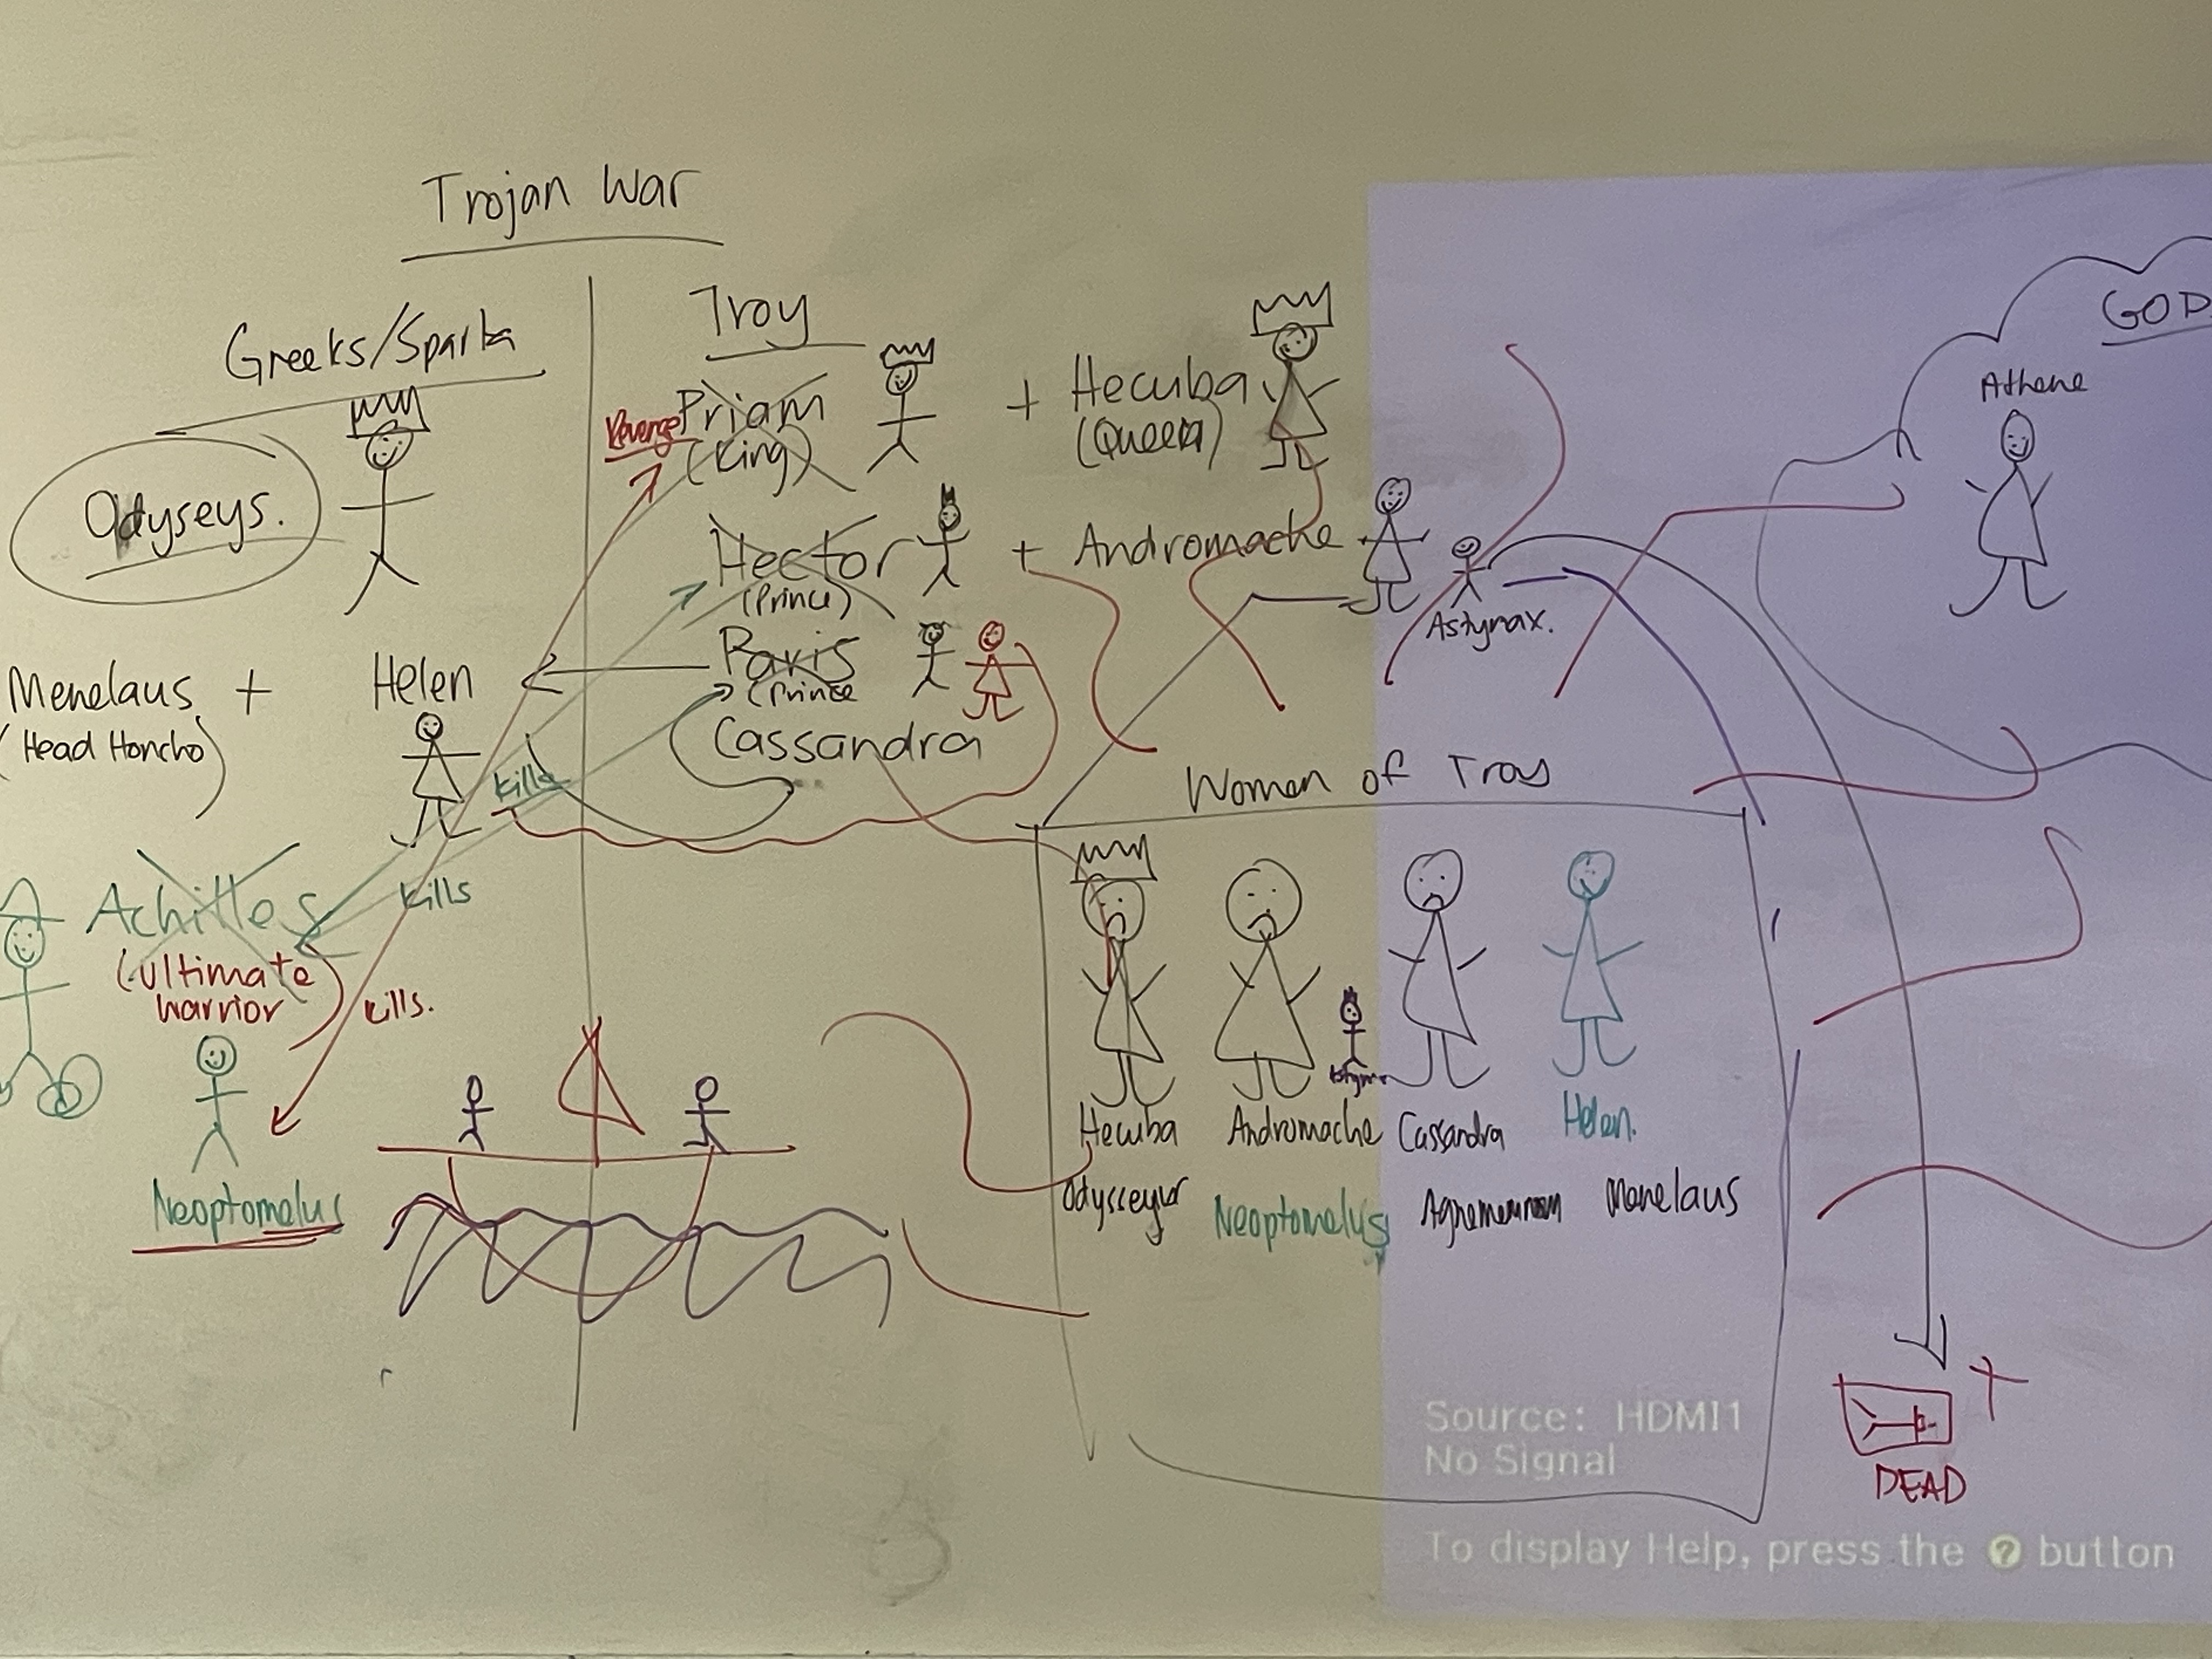 Trojan War
Greeks/Sparta
Odyseys.
Menelaus + Helen
(Head Honcho)
Achilles
(ultimate
warrior
Neoptomelus
kills
kills
kills.
Troy
Revenge
Priam + Hecuba
(King) (Queen)
Hector + Andromache
(Prince)
Astynax.
Paris
(Prince
Cassandra
GOD
Athene
Women of Troy
Hecuba Andromache Cassandra Helen.
Neoptomelus Menelaus
DEAD
Source: HDMI1
No Signal
To display Help, press the ? button